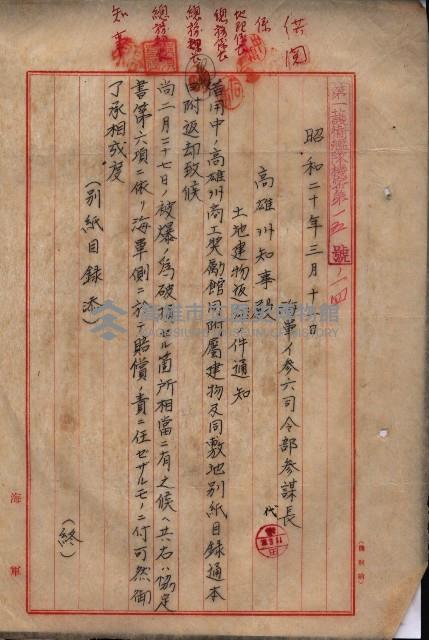 供閲
係
地理係長
總務係長
總務課長
總務部長
知事
第一護衛艦隊機密第一五號ノ一四
昭和二十年三月十日
海軍イ参六司令部参謀長
代
高雄州知事殿
土地建物返却ノ件通知
借用中ノ高雄州商工奨勵館同附屬建物及同敷地別紙目録通本
日附返却致候
尚二月二十七日ノ被爆ノ為破損セル箇所相當ニ有之候ヘ共右ハ協定
書第六項ニ依リ海軍側ニ於テ賠償ノ責ニ任セザルモノニ付可然御
了承相成度
（別紙目録添）
（終）
海軍
高雄市立歷史博物館
KAOHSIUNG MUSEUM OF HISTORY